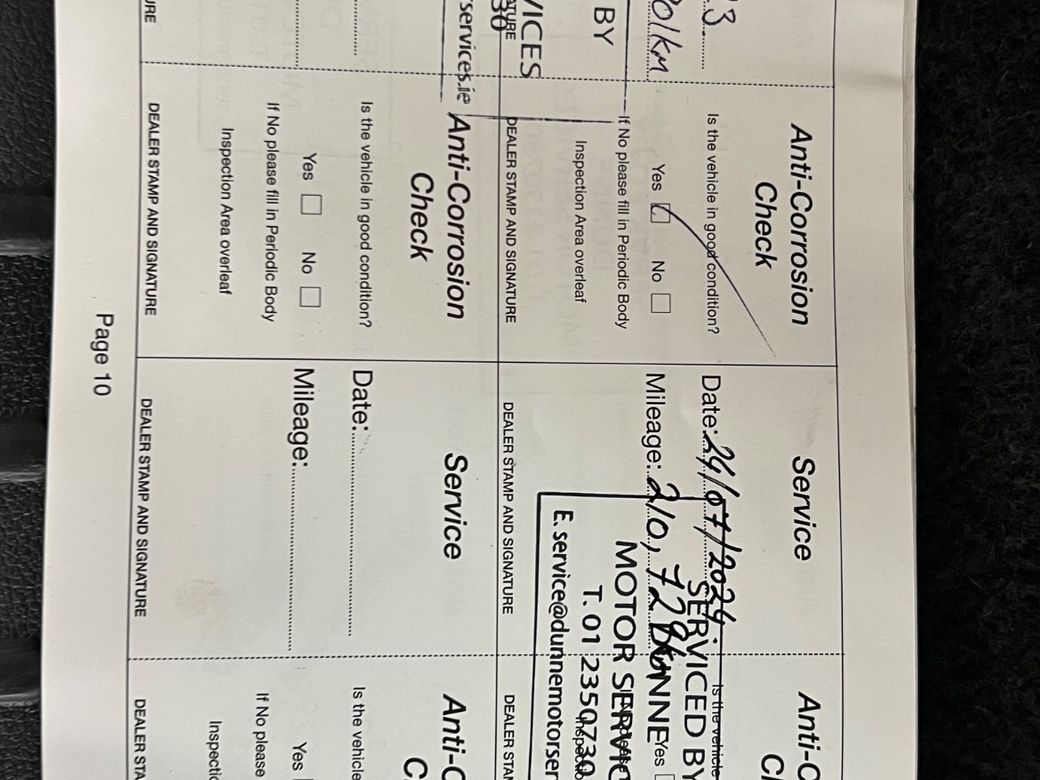 .3
01km
BY
VICES
TURE
30
services.ie
URE
Anti-Corrosion
Check
Is the vehicle in good condition?
Yes No
If No please fill in Periodic Body
Inspection Area overleaf
DEALER STAMP AND SIGNATURE
Service
Date: 24/07/2024
Mileage: 210,728km
SERVICED BY
DUNNE
MOTOR SERVIC
T. 01 2350730
E. service@dunnemotorser
DEALER STAMP AND SIGNATURE
Anti-C
C
Is the vehicle
Yes
DEALER STAM
Anti-Corrosion
Check
Is the vehicle in good condition?
Yes No
If No please fill in Periodic Body
Inspection Area overleaf
DEALER STAMP AND SIGNATURE
Service
Date:
Mileage:
DEALER STAMP AND SIGNATURE
Anti-C
C
Is the vehicle
Yes
If No please
Inspectic
DEALER STA
Page 10